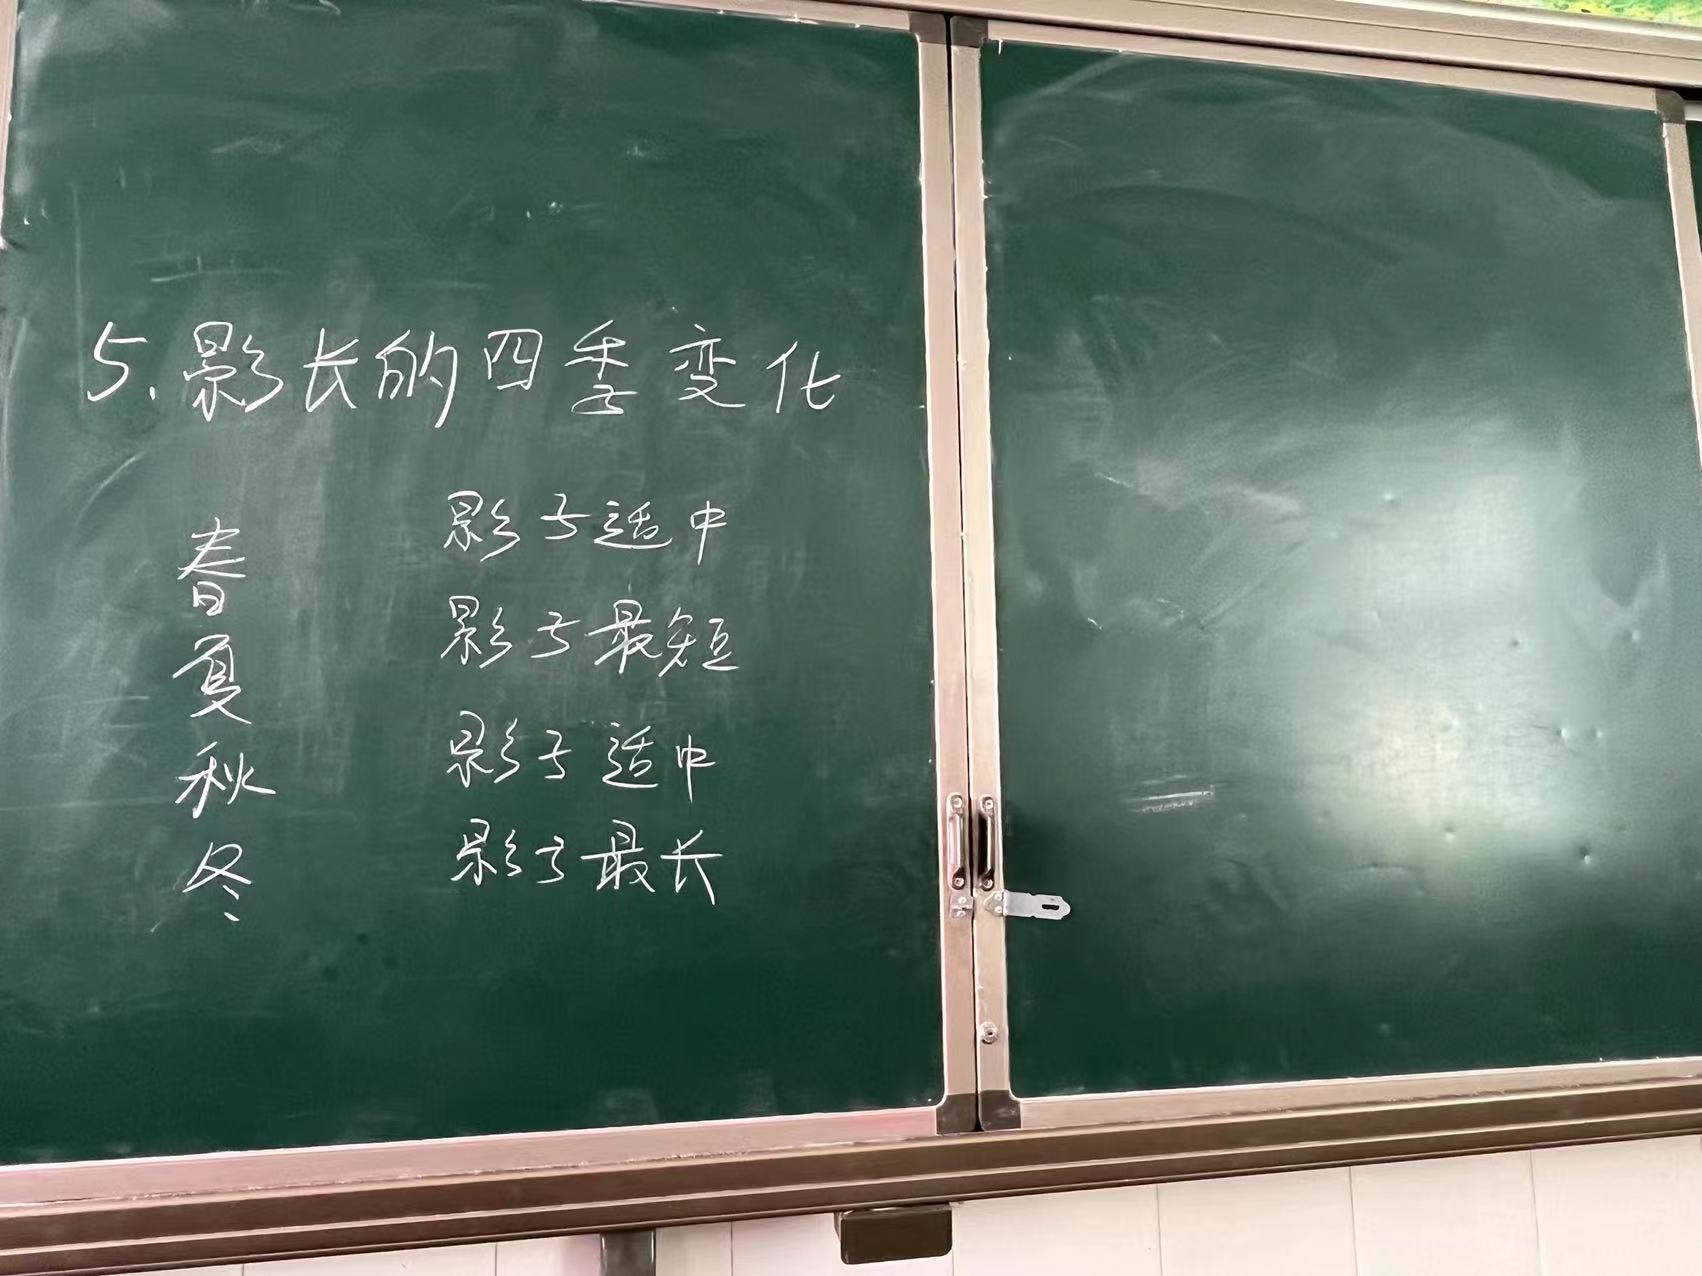 5.影长的四季变化
春 影子适中
夏 影子最短
秋 影子适中
冬 影子最长